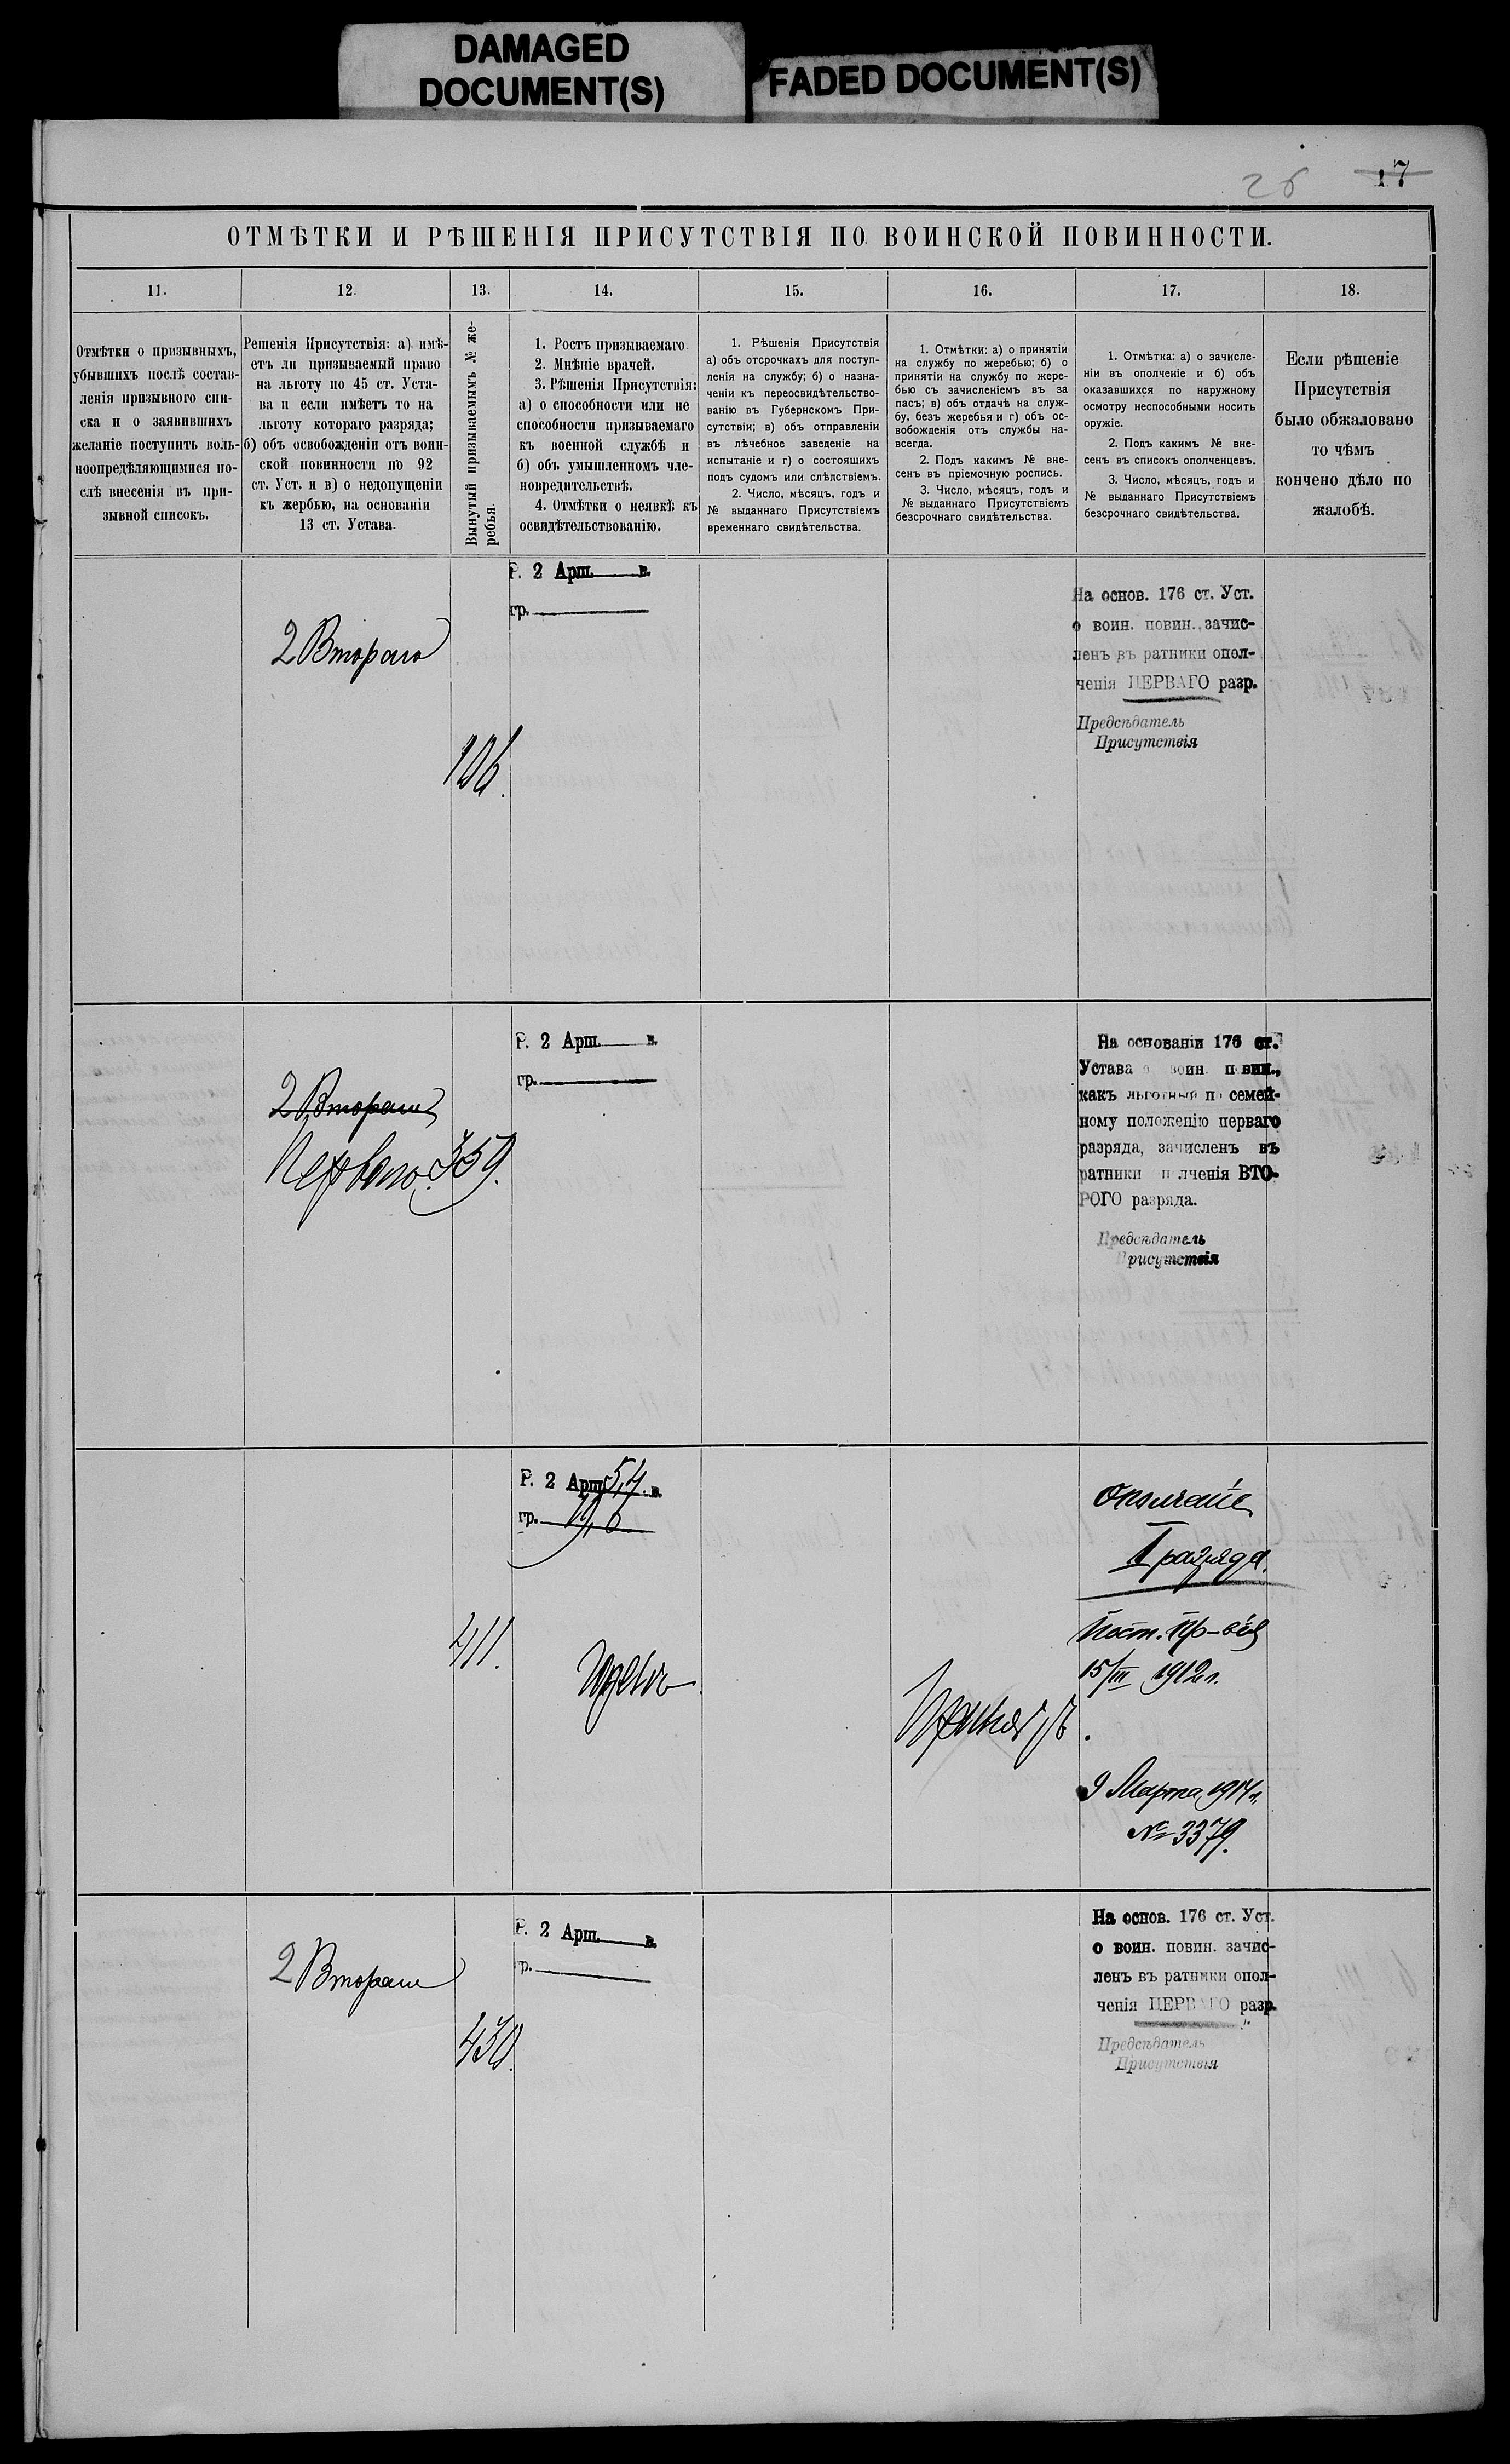 DAMAGED
DOCUMENT(S)
FADED DOCUMENT(S)
26 17
ОТМѢТКИ И РѢШЕНІЯ ПРИСУТСТВІЯ ПО ВОИНСКОЙ ПОВИННОСТИ.
11.
12.
13.
14.
15.
16.
17.
18.
Отмѣтки о призывныхъ,
убывшихъ послѣ состав-
ленія призывного спи-
ска и о заявившихъ
желаніе поступить воль-
ноопредѣляющимися по-
слѣ внесенія въ при-
зывной списокъ.
Решенія Присутствія: а) имѣ-
етъ ли призываемый право
на льготу по 45 ст. Уста-
ва и если имѣетъ то на
льготу котораго разряда;
б) объ освобожденіи отъ воин-
ской повинности по 92
ст. Уст. и в) о недопущеніи
къ жербью, на основаніи
13 ст. Устава.
Вынутый призываемымъ № же-
ребья.
1. Ростъ призываемаго
2. Мнѣніе врачей.
3. Рѣшенія Присутствія:
а) о способности или не
способности призываемаго
къ военной службѣ и
б) объ умышленномъ чле-
новредительствѣ.
4. Отмѣтки о неявкѣ къ
освидѣтельствованію.
1. Рѣшенія Присутствія
а) объ отсрочкахъ для поступ-
ленія на службу; б) о назна-
ченіи къ переосвидѣтельство-
ванію въ Губернскомъ При-
сутствіи; в) объ отправленіи
въ лѣчебное заведеніе на
испытаніе и г) о состоящихъ
подъ судомъ или слѣдствіемъ.
2. Число, мѣсяцъ, годъ и
№ выданнаго Присутствіемъ
временнаго свидѣтельства.
1. Отмѣтки: а) о принятіи
на службу по жеребью; б) о
принятіи на службу по жере-
бью съ зачисленіемъ въ за
пасъ; в) объ отдачѣ на служ-
бу, безъ жеребья и г) объ ос-
вобожденія отъ службы на-
всегда.
2. Подъ какимъ № вне-
сенъ въ пріемочную роспись.
3. Число, мѣсяцъ, годъ и
№ выданнаго Присутствіемъ
безсрочнаго свидѣтельства.
1. Отмѣтка: а) о зачисле-
ніи въ ополченіе и б) объ
оказавшихся по наружному
осмотру неспособными носить
оружіе.
2. Подъ какимъ № вне-
сенъ въ списокъ ополченцевъ.
3. Число, мѣсяцъ, годъ и
№ выданнаго Присутствіемъ
безсрочнаго свидѣтельства.
Если рѣшеніе
Присутствія
было обжаловано
то чѣмъ
кончено дѣло по
жалобѣ.
2 Второго
106.
Р. 2 Арш. в.
гр.
На основ. 176 ст. Уст.
о воин. повин. зачис-
ленъ въ ратники опол-
ченія ПЕРВАГО разр.
Предсѣдатель
Присутствія
2 Второго
Перваго
359.
Р. 2 Арш. в.
гр.
На основаніи 176 ст.
Устава о воин. повин.,
какъ льготный по семей-
ному положенію перваго
разряда, зачисленъ въ
ратники п лченія ВТО-
РОГО разряда.
Предсѣдатель
Присутствія
411.
Р. 2 Арш. 5,4 в.
гр.
Годенъ
Принятъ
Ополченіе
I разряда.
Пост. Пр-вія
15/III 1912 г.
9 Марта 1914 г.
№ 3379.
2 Второго
430.
Р. 2 Арш. в.
гр.
На основ. 176 ст. Уст.
о воин. повин. зачис-
ленъ въ ратники опол-
ченія ПЕРВАГО разр.
Предсѣдатель
Присутствія